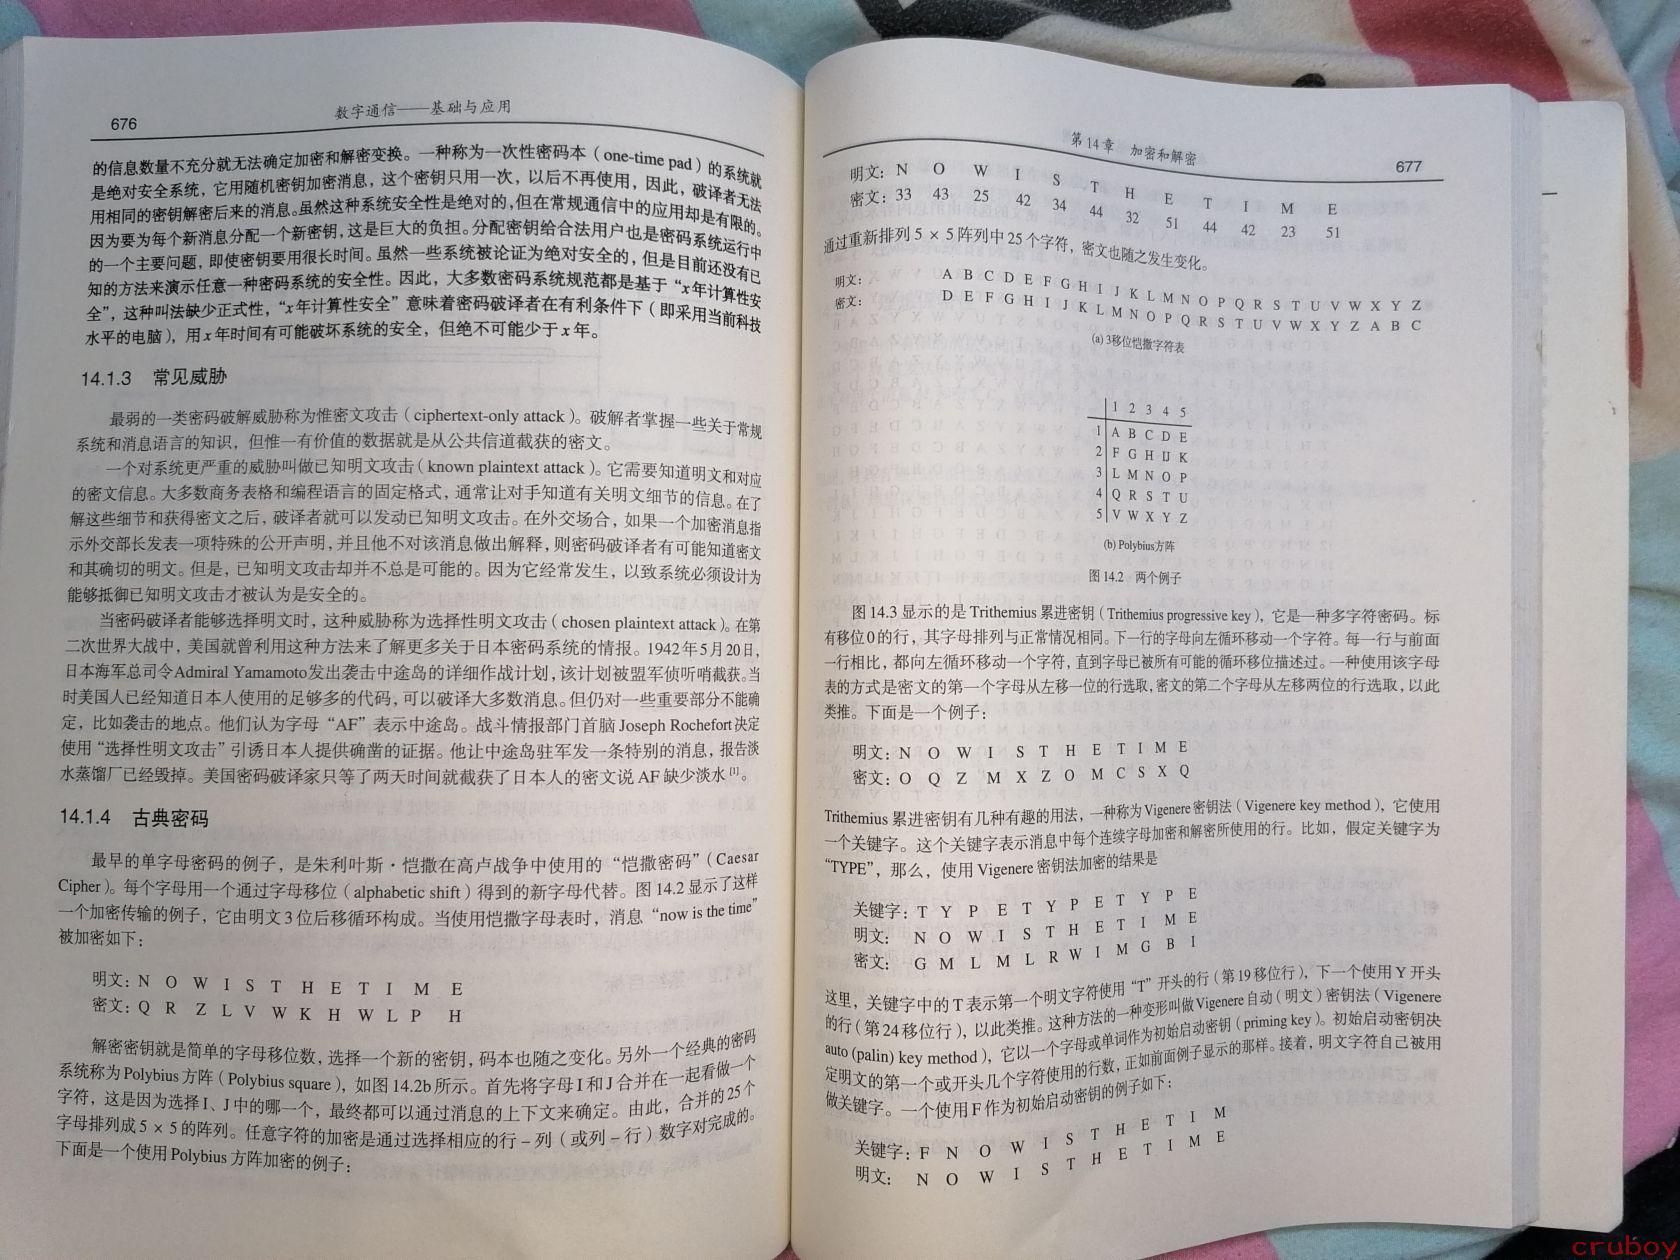 676
数字通信——基础与应用
的信息数量不充分就无法确定加密和解密变换。一种称为一次性密码本（one-time pad）的系统就
是绝对安全系统，它用随机密钥加密消息，这个密钥只用一次，以后不再使用，因此，破译者无法
用相同的密钥解密后来的消息。虽然这种系统安全性是绝对的，但在常规通信中的应用却是有限的。
因为要为每个新消息分配一个新密钥，这是巨大的负担。分配密钥给合法用户也是密码系统运行中
的一个主要问题，即使密钥要用很长时间。虽然一些系统被论证为绝对安全的，但是目前还没有已
知的方法来演示任意一种密码系统的安全性。因此，大多数密码系统规范都是基于“x年计算性安
全”，这种叫法缺少正式性，“x年计算性安全”意味着密码破译者在有利条件下（即采用当前科技
水平的电脑），用x年时间有可能破坏系统的安全，但绝不可能少于x年。
14.1.3 常见威胁
最弱的一类密码破解威胁称为惟密文攻击（ciphertext-only attack）。破解者掌握一些关于常规
系统和消息语言的知识，但惟一有价值的数据就是从公共信道截获的密文。
一个对系统更严重的威胁叫做已知明文攻击（known plaintext attack）。它需要知道明文和对应
的密文信息。大多数商务表格和编程语言的固定格式，通常让对手知道有关明文细节的信息。在了
解这些细节和获得密文之后，破译者就可以发动已知明文攻击。在外交场合，如果一个加密消息指
示外交部长发表一项特殊的公开声明，并且他不对该消息做出解释，则密码破译者有可能知道密文
和其确切的明文。但是，已知明文攻击却并不总是可能的。因为它经常发生，以致系统必须设计为
能够抵御已知明文攻击才被认为是安全的。
当密码破译者能够选择明文时，这种威胁称为选择性明文攻击（chosen plaintext attack）。在第
二次世界大战中，美国就曾利用这种方法来了解更多关于日本密码系统的情报。1942年5月20日，
日本海军总司令Admiral Yamamoto发出袭击中途岛的详细作战计划，该计划被盟军侦听哨截获。当
时美国人已经知道日本人使用的足够多的代码，可以破译大多数消息。但仍对一些重要部分不能确
定，比如袭击的地点。他们认为字母“AF”表示中途岛。战斗情报部门首脑Joseph Rochefort决定
使用“选择性明文攻击”引诱日本人提供确凿的证据。他让中途岛驻军发一条特别的消息，报告淡
水蒸馏厂已经毁掉。美国密码破译家只等了两天时间就截获了日本人的密文说AF缺少淡水[1]。
14.1.4 古典密码
最早的单字母密码的例子，是朱利叶斯·恺撒在高卢战争中使用的“恺撒密码”（Caesar
Cipher）。每个字母用一个通过字母移位（alphabetic shift）得到的新字母代替。图14.2显示了这样
一个加密传输的例子，它由明文3位后移循环构成。当使用恺撒字母表时，消息“now is the time”
被加密如下：
明文：N O W I S T H E T I M E
密文：Q R Z L V W K H W L P H
解密密钥就是简单的字母移位数，选择一个新的密钥，码本也随之变化。另外一个经典的密码
系统称为Polybius方阵（Polybius square），如图14.2b所示。首先将字母I和J合并在一起看做一个
字符，这是因为选择I、J中的哪一个，最终都可以通过消息的上下文来确定。由此，合并的25个
字母排列成5×5的阵列。任意字符的加密是通过选择相应的行－列（或列－行）数字对完成的。
下面是一个使用Polybius方阵加密的例子：
第14章 加密和解密
677
明文：N O W I S T H E T I M E
密文：33 43 25 42 34 44 32 51 44 42 23 51
通过重新排列5×5阵列中25个字符，密文也随之发生变化。
明文： A B C D E F G H I J K L M N O P Q R S T U V W X Y Z
密文： D E F G H I J K L M N O P Q R S T U V W X Y Z A B C
(a) 3移位恺撒字符表
1 2 3 4 5
1 A B C D E
2 F G H IJ K
3 L M N O P
4 Q R S T U
5 V W X Y Z
(b) Polybius方阵
图14.2 两个例子
图14.3显示的是Trithemius累进密钥（Trithemius progressive key），它是一种多字符密码。标
有移位0的行，其字母排列与正常情况相同。下一行的字母向左循环移动一个字符。每一行与前面
一行相比，都向左循环移动一个字符，直到字母已被所有可能的循环移位描述过。一种使用该字母
表的方式是密文的第一个字母从左移一位的行选取，密文的第二个字母从左移两位的行选取，以此
类推。下面是一个例子：
明文：N O W I S T H E T I M E
密文：O Q Z M X Z O M C S X Q
Trithemius累进密钥有几种有趣的用法，一种称为Vigenere密钥法（Vigenere key method），它使用
一个关键字。这个关键字表示消息中每个连续字母加密和解密所使用的行。比如，假定关键字为
“TYPE”，那么，使用Vigenere密钥法加密的结果是
关键字：T Y P E T Y P E T Y P E
明文： N O W I S T H E T I M E
密文： G M L M L R W I M G B I
这里，关键字中的T表示第一个明文字符使用“T”开头的行（第19移位行），下一个使用Y开头
的行（第24移位行），以此类推。这种方法的一种变形叫做Vigenere自动（明文）密钥法（Vigenere
auto (palin) key method），它以一个字母或单词作为初始启动密钥（priming key）。初始启动密钥决
定明文的第一个或开头几个字符使用的行数，正如前面例子显示的那样。接着，明文字符自己被用
做关键字。一个使用F作为初始启动密钥的例子如下：
关键字：F N O W I S T H E T I M
明文： N O W I S T H E T I M E
cruboy